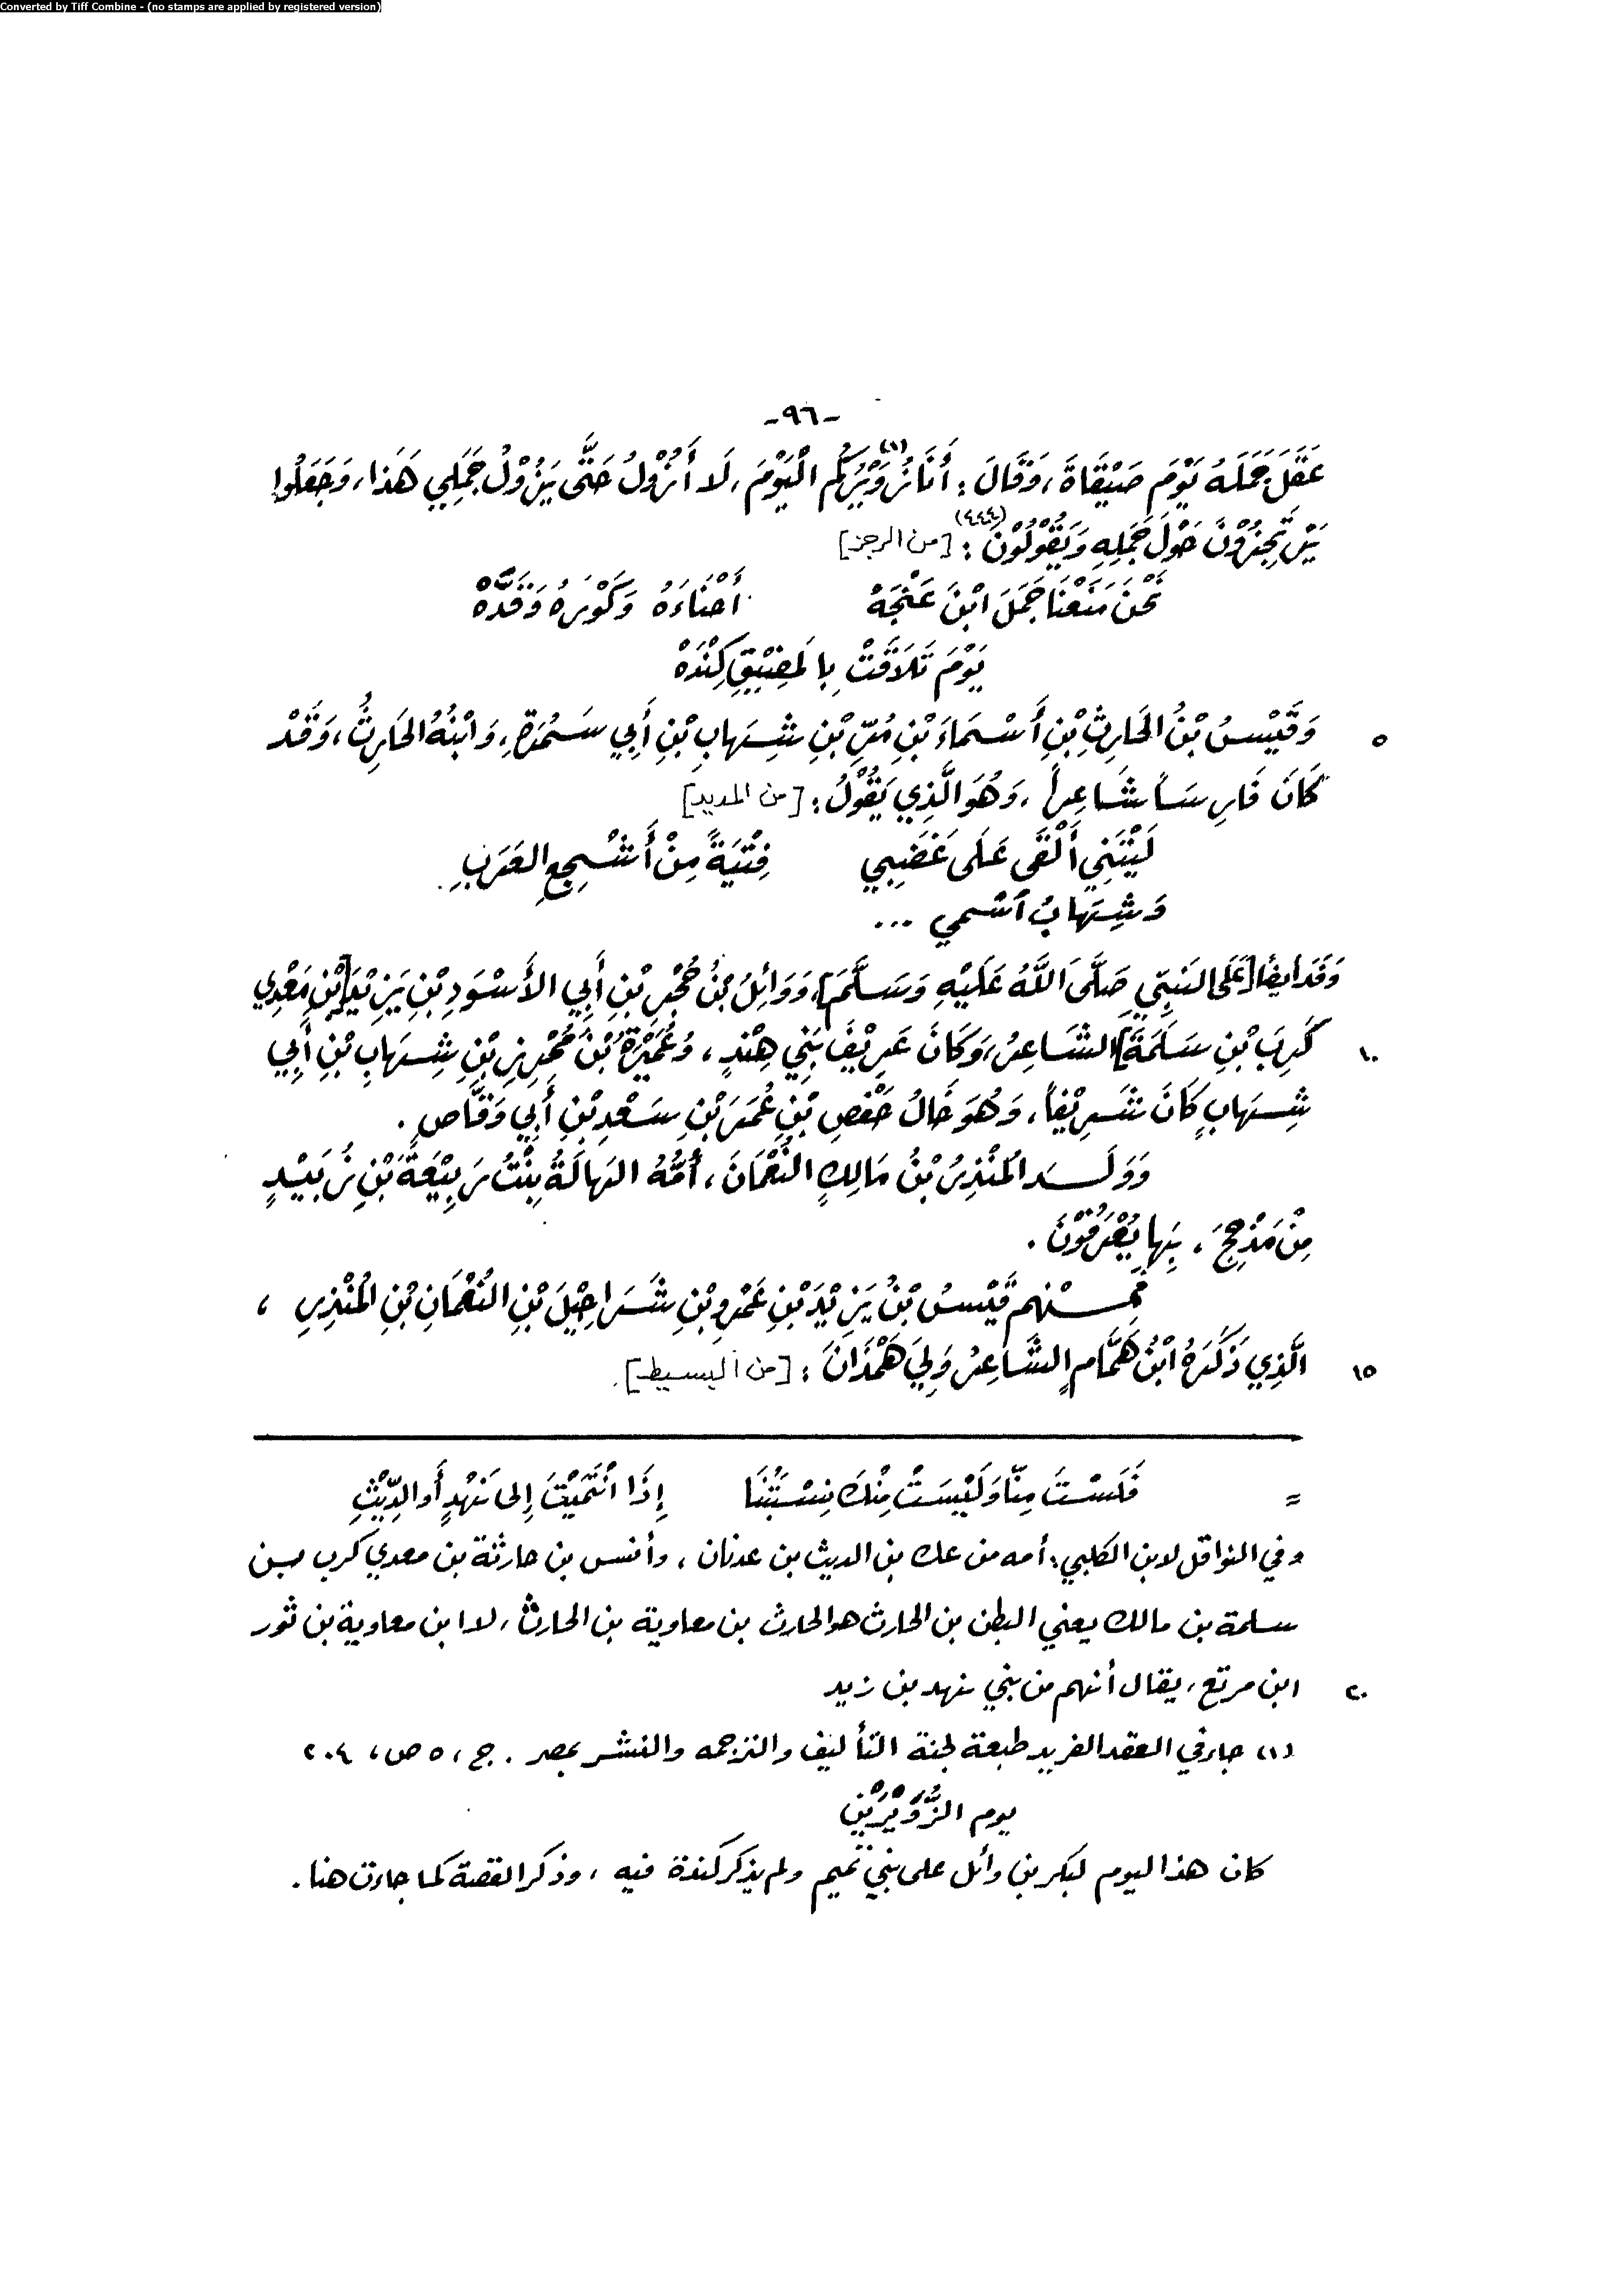 Converted by Tiff Combine - (no stamps are applied by registered version)
-٩٦-
عَقَلَ جَمَلَهُ يَوْمَ صَيْقَاةَ، وَقَالَ: أَنَا زُوَيْرُكُم (١) الْيَوْمَ، لَا أَزُوْلُ حَتَّى يَزُوْلَ جَمَلِي هَذَا، وَجَعَلُوا
يَرْتَجِزُوْنَ حَوْلَ جَمَلِهِ وَيَقُوْلُوْنَ (٤٤٤): [من الرجز]
نَحْنُ مَنَعْنَا جَمَلَ ابْنَ عَنْجَهْ أَحْنَاءَهُ وَكَوْرَهُ وَقَدَّهْ
يَوْمَ تَلَاقَتْ بِالمَضِيْقِ كِنْدَهْ
٥ وَقَيْسُ بْنُ الحَارِثِ بْنِ أَسْمَاءَ بْنِ مُرِّ بْنِ شِهَابِ بْنِ أَبِي سَمُرَةَ، وَابْنُهُ الحَارِثُ، وَقَدْ
كَانَ فَارِسَاً شَاعِراً، وَهُوَ الَّذِي يَقُوْلُ: [من المديد]
لَيْتَنِي أَلْقَى عَلَى غَضَبِي فِتْيَةً مِنْ أَشْجِعِ العَرَبِ
وَشِهَابُ اسْمي ...
وَفَدَ أيضًا [عَلَى النَبِيِّ صَلَّى اللَّهُ عَلَيْهِ وَسَلَّمَ]، وَوَائِلُ بْنُ حُجْرِ بْنِ أَبِي الأَسْوَدِ بْنِ يَزِيْدَ [بْنِ مَعْدِي
١٠ كَرِبَ بْنِ سَلَمَةَ] الشَاعِرُ، وَكَانَ عَرِيْفَ بَنِي هِنْدٍ، وَعُمَيْرَةُ بْنُ مُحْرِزِ بْنِ شِهَابِ بْنِ أَبِي
شِهَابٍ كَانَ شَرِيْفاً، وَهُوَ خَالُ حَفْصِ بْنِ عُمَرَ بْنِ سَعْدِ بْنِ أَبِي وَقَّاصٍ.
وَوَلَــدَ المُنْذِرُ بْنُ مَالِكٍ النُّعْمَانَ، أُمُّهُ الهَالَةُ بِنْتُ رَبِيْعَةَ بْنِ زُبَيْدٍ
مِنْ مَذْحِجَ، بِهَا يُعْرَفُوْنَ.
فَمِــنْهم قَيْسُ بْنُ يَزِيْدَ بْنِ عَمْرِو بْنِ شَرَاحِيْلَ بْنِ النُعْمَانِ بْنِ المُنْذِرِ،
١٥ الَّذِي ذَكَرَهُ ابْنُ هَمَّامٍ الشَّاعِرُ وَلِيَ هَمْذَانَ: [من البسيط].
= فَلَسْتَ مِنّا وَلَيْسَتْ مِنْكَ نِسْبَتُنَا إِذَا انْتَمَيْتَ إِلى نَهْدٍ أَو الدِّيْثِ
وفي النواقل لابن الكلبي: أمه من عك بن الديث بن عدنان، وأنس بن حارثة بن معدي كرب بــن
سلمة بن مالك يعني البطن بن الحارث هو الحارث بن معاوية بن الحارث، لا ابن معاوية بن ثور
٢٠ ابن مرتع، يقال أنهم من بني نهد بن زيد
(١) جاء في العقد الفريد طبعة لجنة التأليف والترجمه والنشر بمصر. ج، ٥ ص، ٢٠٤
يوم الزُّوَيْرَيْنِ
كان هذا اليوم لبكر بن وائل على بني تميم ولم يذكر كندة فيه، وذكر القصة كما جاءت هنا.